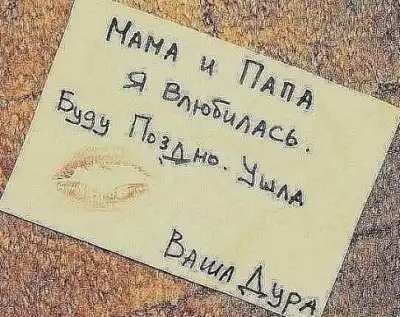 Мама и Папа
Я Влюбилась.
Буду Поздно. Ушла
Ваша Дура